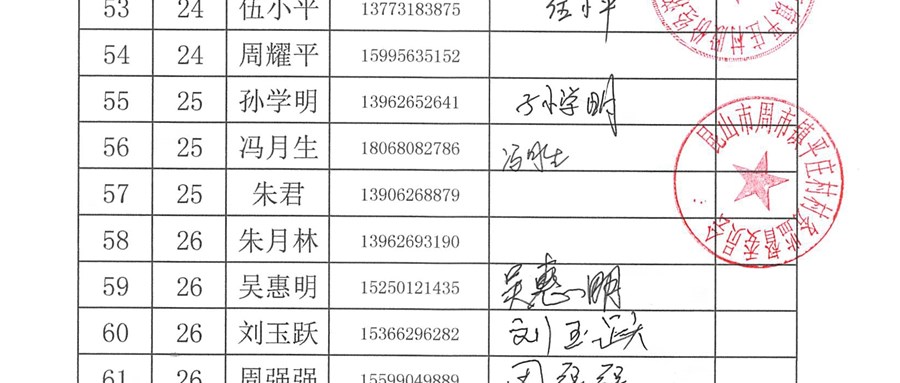 53 24 伍小平 13773183875 伍小平
54 24 周耀平 15995635152
55 25 孙学明 13962652641 孙学明
56 25 冯月生 18068082786 冯月生
57 25 朱君 13906268879
58 26 朱月林 13962693190
59 26 吴惠明 15250121435 吴惠明
60 26 刘玉跃 15366296282 刘玉跃
61 26 周强强 15599049889 周强强
昆山市周市镇平庄村村务监督委员会